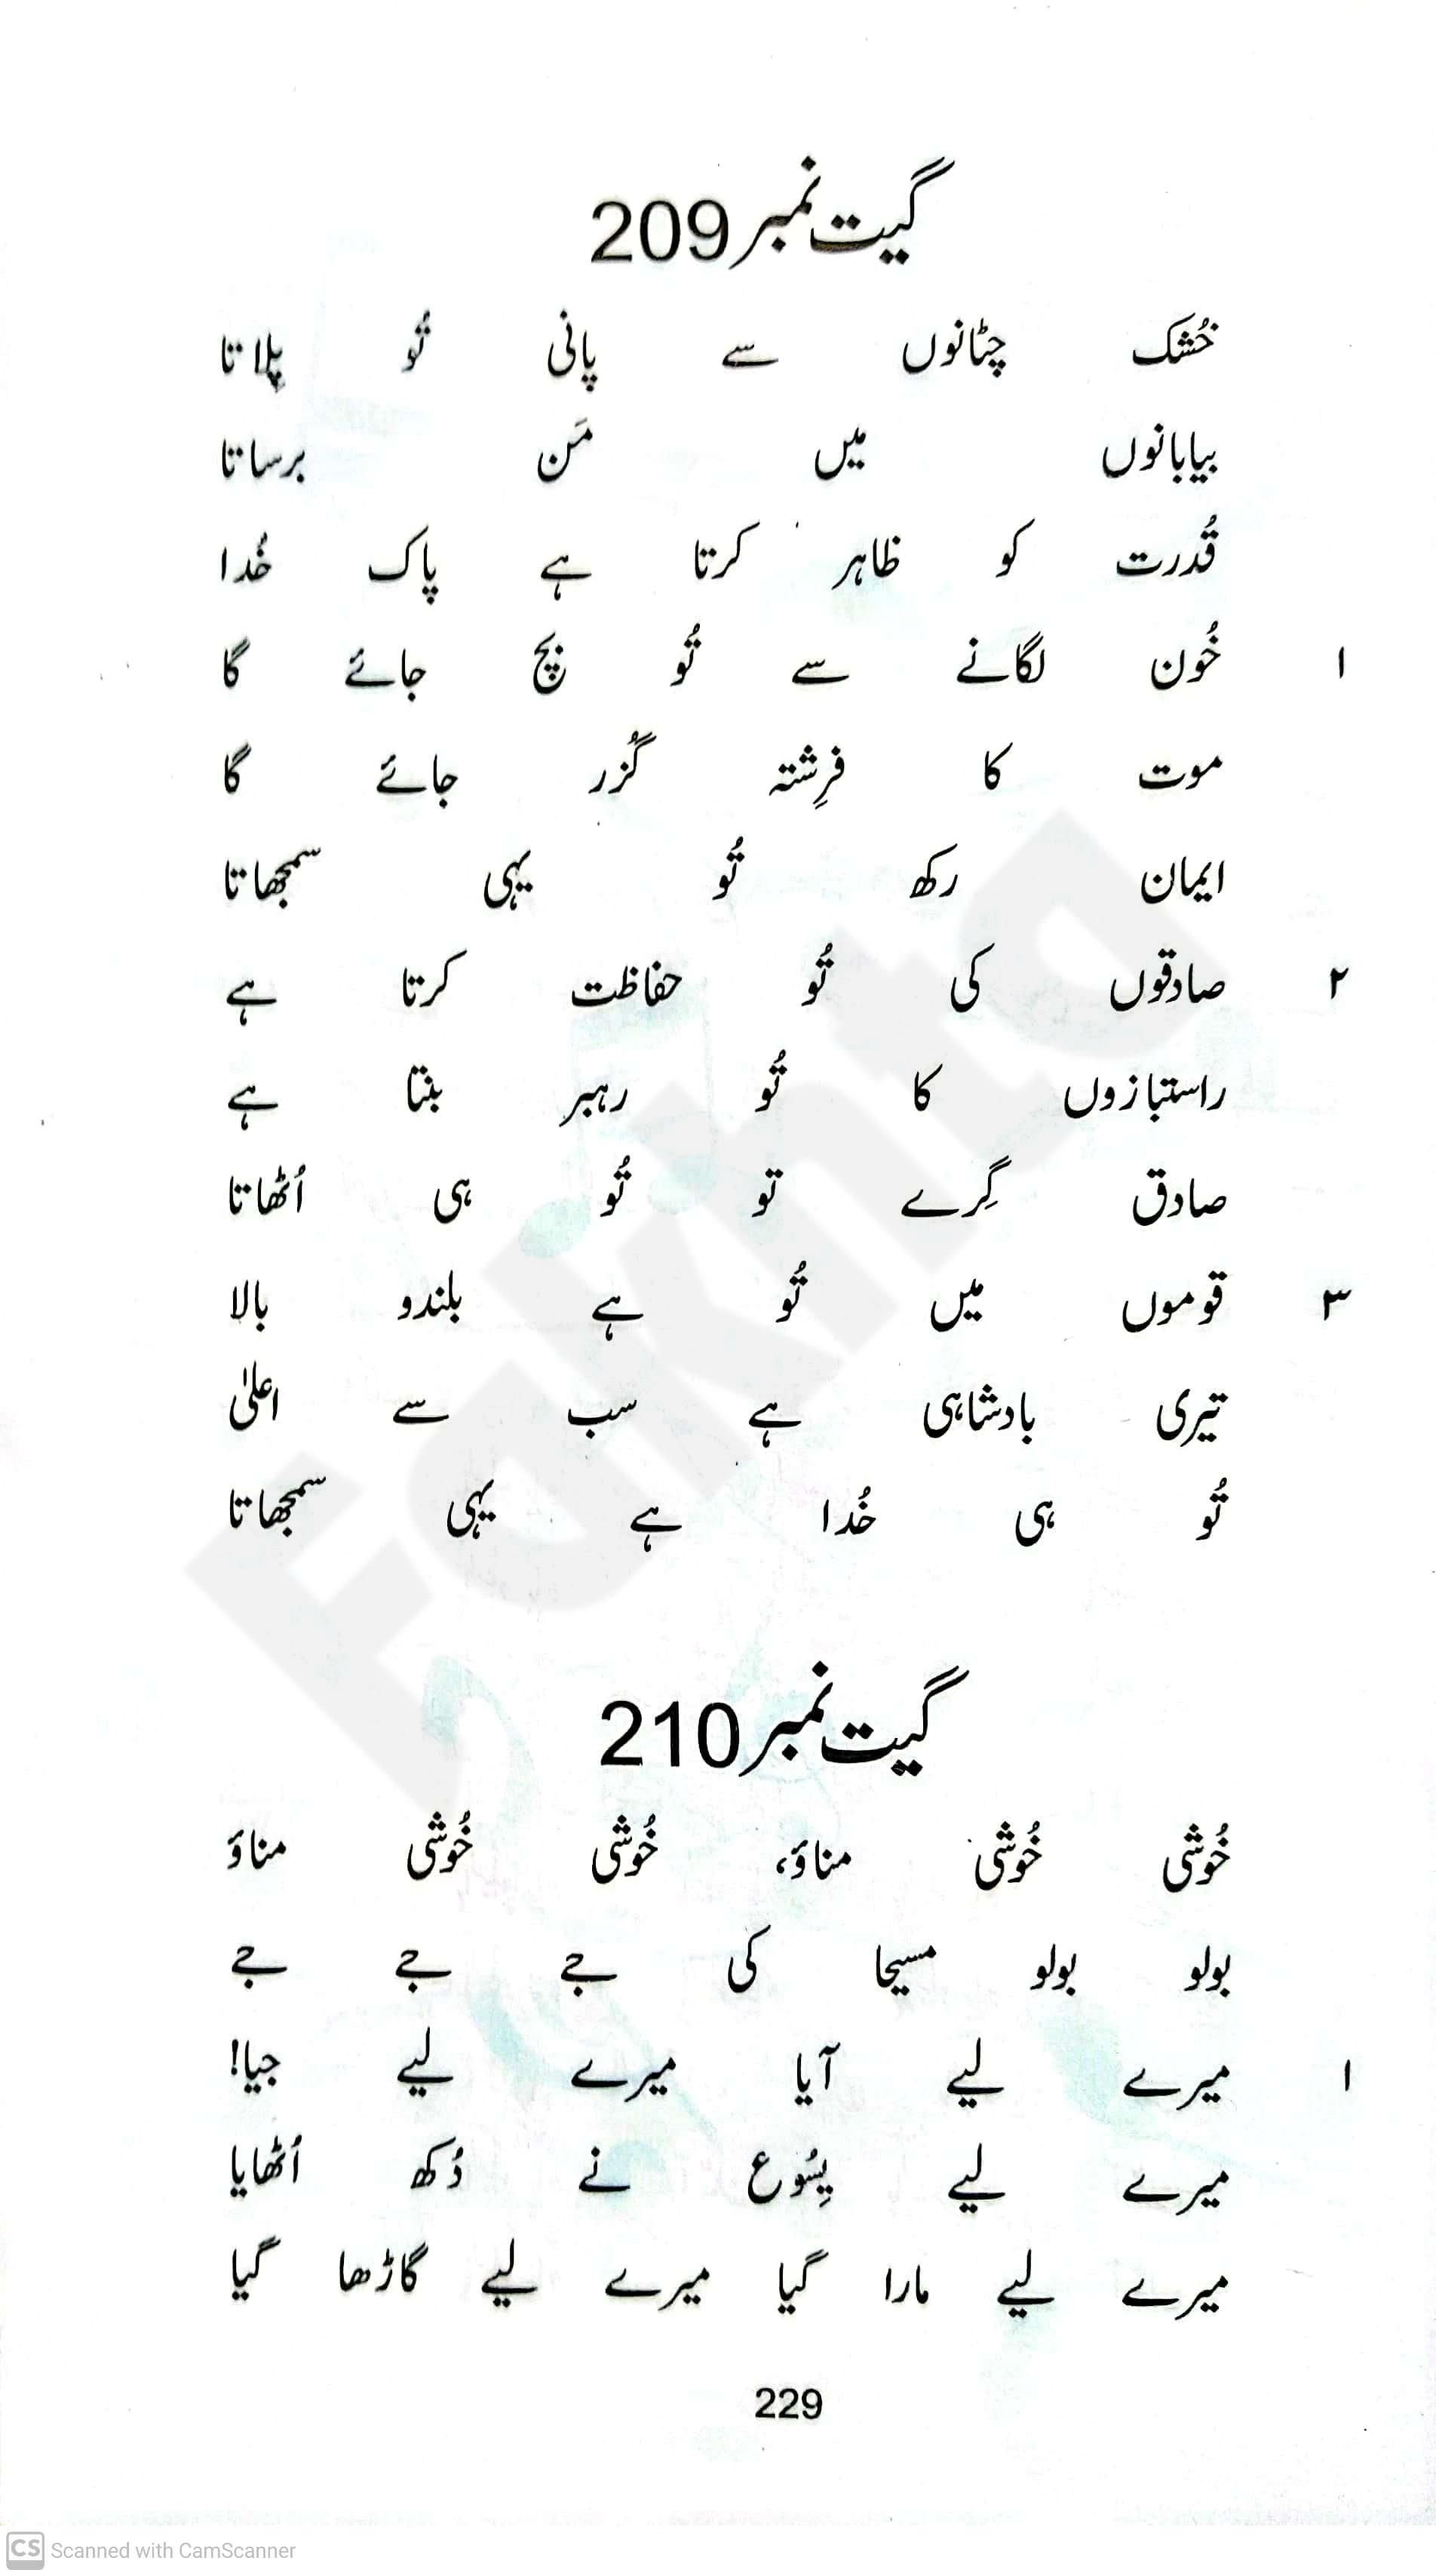 گیت نمبر 209
خُشک چٹانوں سے پانی تُو پلاتا
بیابانوں میں مَن برساتا
قُدرت کو ظاہر کرتا ہے پاک خُدا
۱ خُون لگانے سے تُو بچ جائے گا
موت کا فرِشتہ گُزر جائے گا
ایمان رکھ تُو یہی سمجھاتا
۲ صادقوں کی تُو حفاظت کرتا ہے
راستبازوں کا تُو رہبر بنتا ہے
صادق گِرے تو تُو ہی اُٹھاتا
۳ قوموں میں تُو ہے بلندو بالا
تیری بادشاہی ہے سب سے اعلیٰ
تُو ہی خُدا ہے یہی سمجھاتا
گیت نمبر 210
خُوشی خُوشی مناؤ، خُوشی خُوشی مناؤ
بولو بولو مسیحا کی جے جے جے
۱ میرے لیے آیا میرے لیے جیا!
میرے لیے یِسُوع نے دُکھ اُٹھایا
میرے لیے مارا گیا میرے لیے گاڑھا گیا
229
Fakhta
CS Scanned with CamScanner